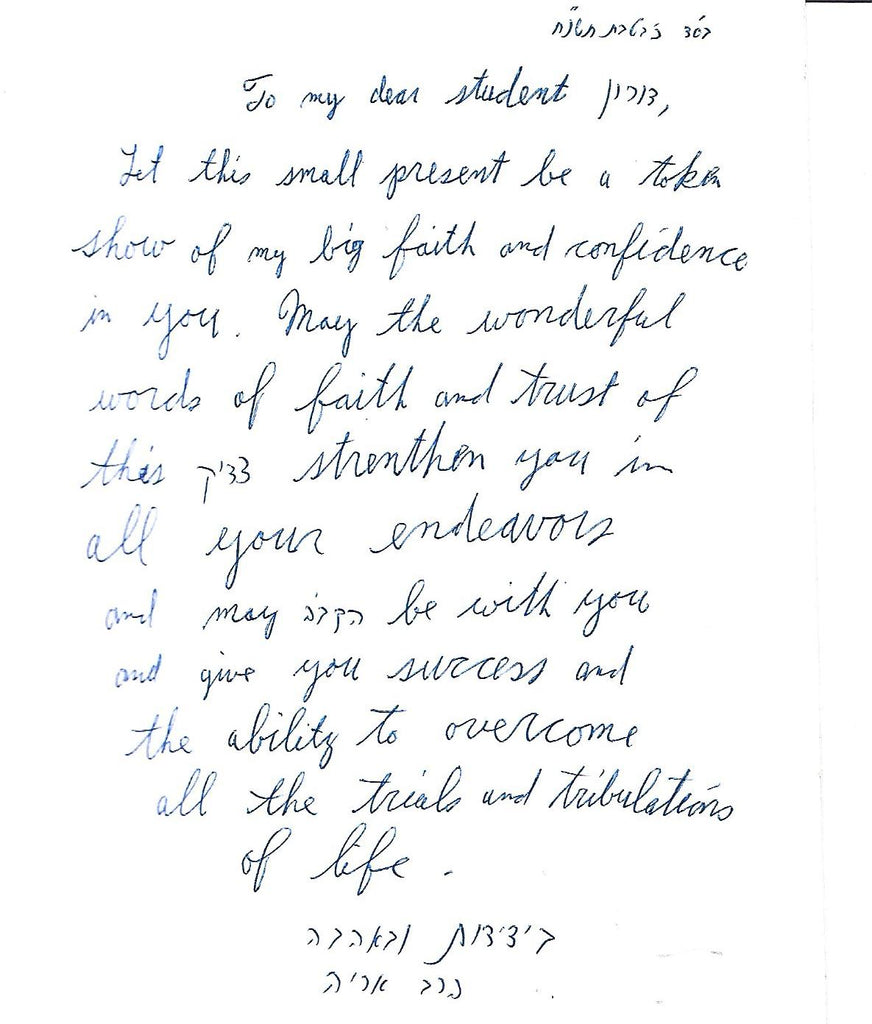 בס"ד בטבת תשנ"ח
To my dear student דורון,
Let this small present be a token
show of my big faith and confidence
in you. May the wonderful
words of faith and trust of
this צדיק strenthen you in
all your endeavors
and may הקב"ה be with you
and give you success and
the ability to overcome
all the trials and tribulations
of life.
בידידות ובאהבה
הרב אריה